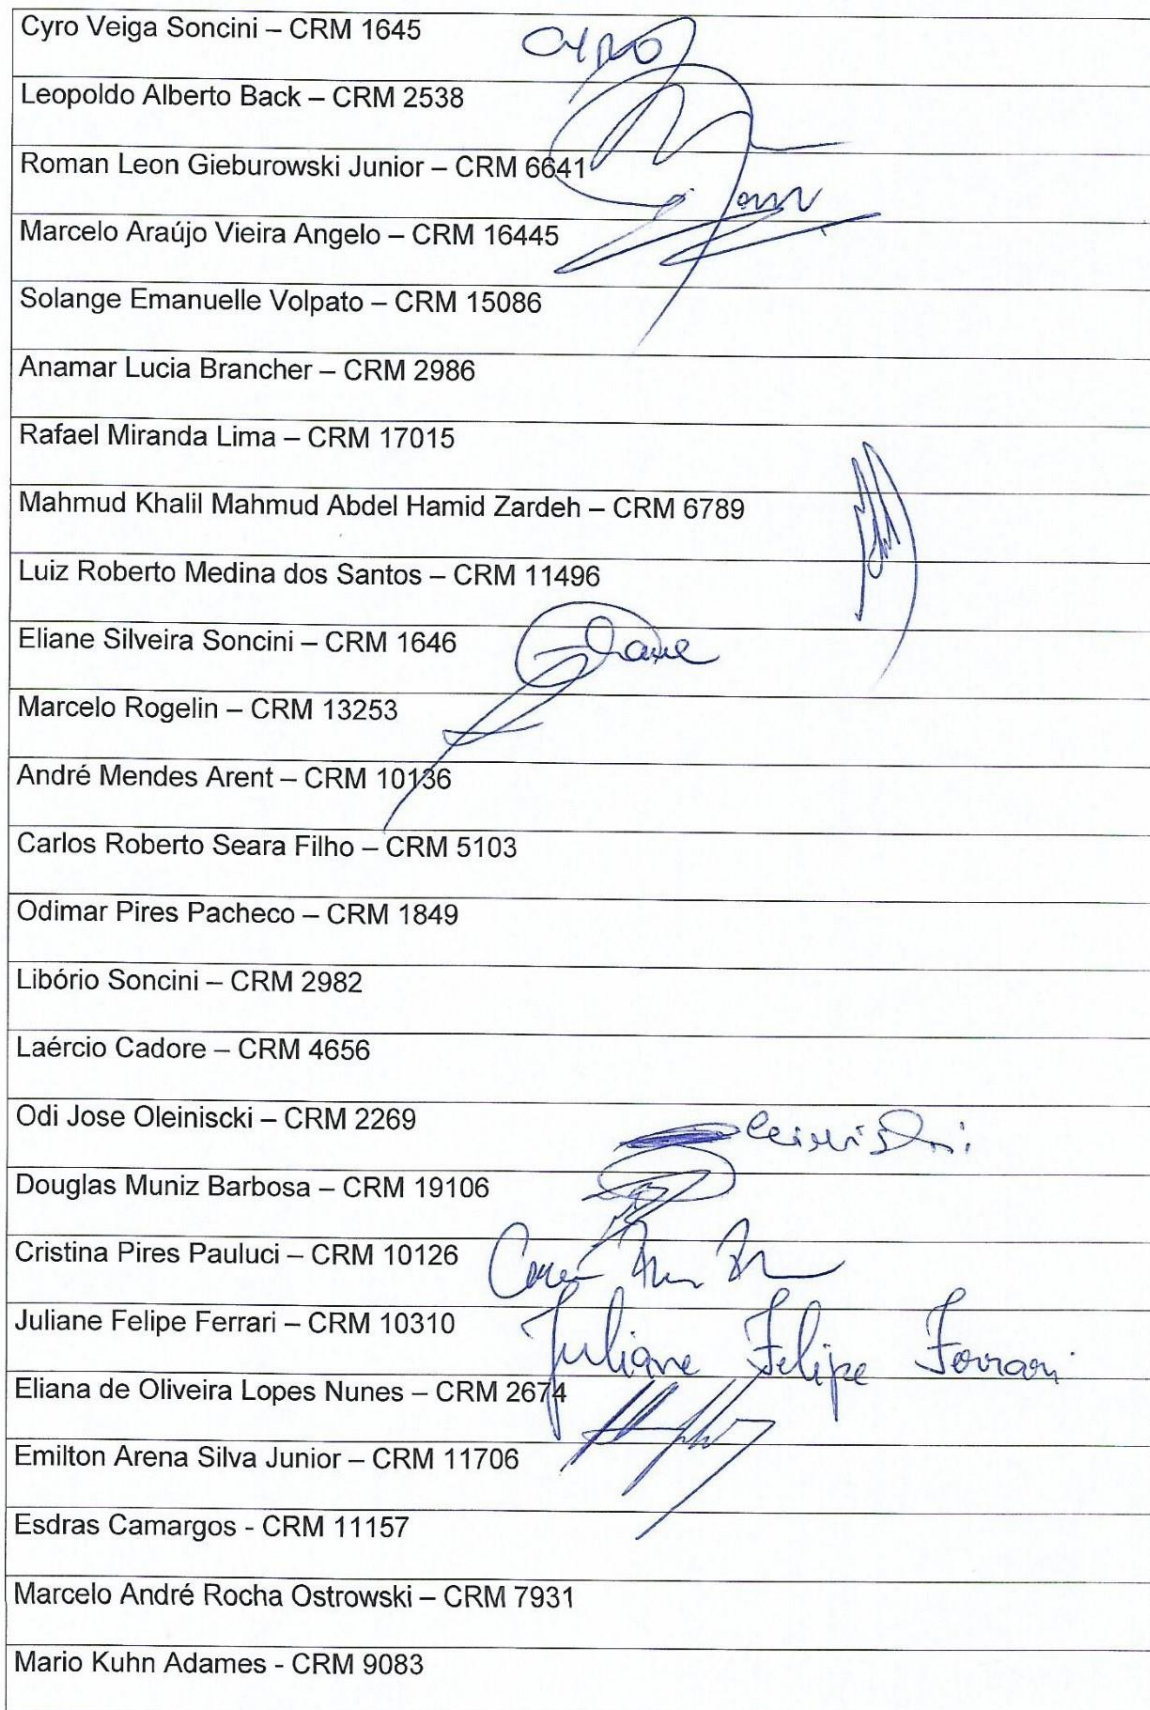 Cyro Veiga Soncini – CRM 1645
CYRO
Leopoldo Alberto Back – CRM 2538
Roman Leon Gieburowski Junior – CRM 6641
Marcelo Araújo Vieira Angelo – CRM 16445
Solange Emanuelle Volpato – CRM 15086
Anamar Lucia Brancher – CRM 2986
Rafael Miranda Lima – CRM 17015
Mahmud Khalil Mahmud Abdel Hamid Zardeh – CRM 6789
Luiz Roberto Medina dos Santos – CRM 11496
Eliane Silveira Soncini – CRM 1646
Eliane
Marcelo Rogelin – CRM 13253
André Mendes Arent – CRM 10136
Carlos Roberto Seara Filho – CRM 5103
Odimar Pires Pacheco – CRM 1849
Libório Soncini – CRM 2982
Laércio Cadore – CRM 4656
Odi Jose Oleiniscki – CRM 2269
Douglas Muniz Barbosa – CRM 19106
Cristina Pires Pauluci – CRM 10126
Juliane Felipe Ferrari – CRM 10310
Juliane Felipe Ferrari
Eliana de Oliveira Lopes Nunes – CRM 2674
Emilton Arena Silva Junior – CRM 11706
Esdras Camargos - CRM 11157
Marcelo André Rocha Ostrowski – CRM 7931
Mario Kuhn Adames - CRM 9083